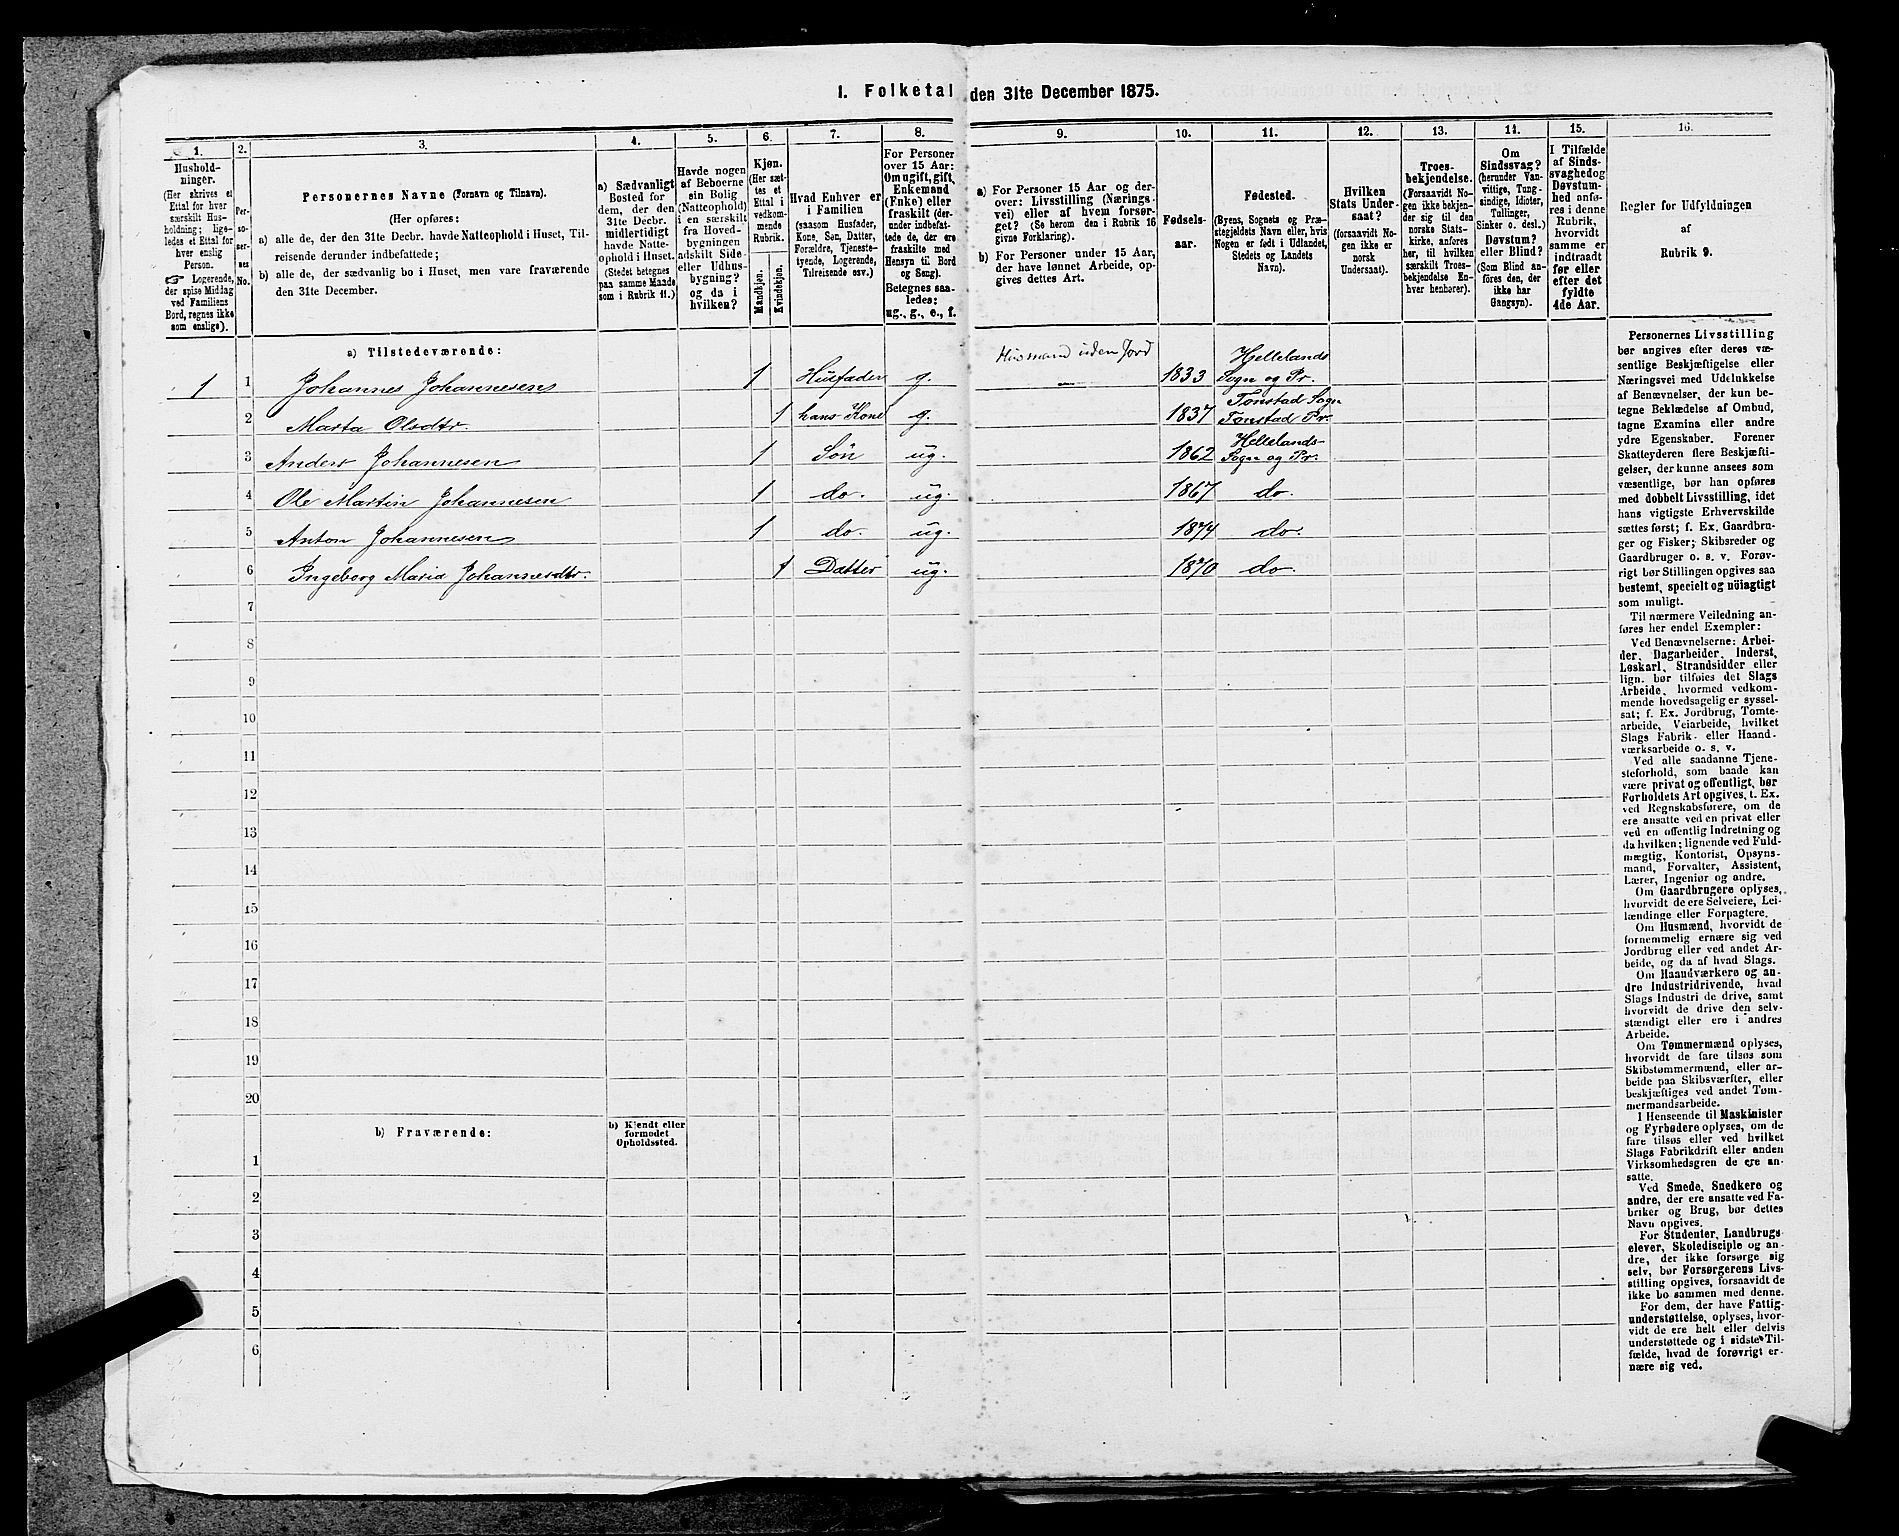 1. Folketal den 31te December 1875.
1.
2.
3.
4.
5.
6.
7.
8.
9.
10.
11.
12.
13.
14.
15.
16.
Hushold-
ninger.
(Her skrives et
Ettal for hver
særskilt Hus-
holdning; lige-
ledes et Ettal for
hver enslig
Person.
☞ Logerende,
der spise Middag
ved Familiens
Bord, regnes ikke
som enslige).
Per-
so-
ner-
nes
No.
Personernes Navne (Fornavn og Tilnavn).
(Her opføres:
a) alle de, der den 31te Decbr. havde Natteophold i Huset, Til-
reisende derunder indbefattede;
b) alle de, der sædvanlig bo i Huset, men vare fraværende
den 31te December.
a) Sædvanligt
Bosted for
dem, der den
31te Decbr.
midlertidigt
havde Natte-
ophold i Huset.
(Stedet betegnes
paa samme Maade
som i Rubrik 11.)
Havde nogen
af Beboerne
sin Bolig
(Natteophold)
i en særskilt
fra Hoved-
bygningen
adskilt Side-
eller Udhus-
bygning?
og da i
hvilken?
Kjøn.
(Her sæt-
tes et
Ettal i
vedkom-
mende
Rubrik.
Mandkjøn.
Kvindekjøn.
Hvad Enhver er
i Familien
(saasom Husfader,
Kone, Søn, Datter,
Forældre, Tjeneste-
tyende, Logerende,
Tilreisende osv.)
For Personer
over 15 Aar:
Om ugift, gift,
Enkemand
(Enke) eller
fraskilt (der-
under indbefat-
tede de, der ere
fraskilte med
Hensyn til Bord
og Seng).
Betegnes saa-
ledes:
ug., g., e., f.
a) For Personer 15 Aar og der-
over: Livsstilling (Nærings-
vei) eller af hvem forsør-
get? (Se herom den i Rubrik 16
givne Forklaring).
b) For Personer under 15 Aar,
der have lønnet Arbeide, op-
gives dettes Art.
Fødsels-
aar.
Fødested.
(Byens, Sognets og Præ-
stegjeldets Navn eller, hvis
Nogen er født i Udlandet,
Stedets og Landets
Navn).
Hvilken
Stats Under-
saat?
(forsaavidt No-
gen ikke er
norsk
Undersaat).
Troes-
bekjendelse.
(Forsaavidt No-
gen ikke bekjen-
der sig til den
norske Stats-
kirke, anføres
her, til hvilken
særskilt Troes-
bekjendelse En-
hver henhører).
Om
Sindssvag?
(herunder Van-
vittige, Tung-
sindige, Idioter,
Tullinger,
Sinker o. desl.)
Døvstum?
eller Blind?
(Som Blind an-
føres den, der
ikke har
Gangsyn).
I Tilfælde
af Sinds-
svaghed og
Døvstum-
hed anfø-
res i denne
Rubrik,
hvorvidt
samme er
indtraadt
før eller
efter det
fyldte
4de Aar.
Regler for Udfyldningen
af
Rubrik 9.
a) Tilstedeværende:
Husmand uden Jord
Hellelands
1 1 Johannes Johannesen 1 Husfader g. 1833 Sogn og Pr.
Tonstad Sogn
2 Marta Olsdtr. 1 hans Kone g. 1837 Tonstad Pr.
Hellelands-
3 Anders Johannesen 1 Søn ug. 1862 Sogn og Pr.
4 Ole Martin Johannesen 1 do. ug. 1867 do.
5 Anton Johannesen 1 do. ug. 1874 do.
6 Ingeborg Maria Johannesdtr. 1 Datter ug. 1870 do.
7
8
9
10
11
12
13
14
15
16
17
18
19
20
b) Fraværende:
b) Kjendt eller
formodet
Opholdssted.
1
2
3
4
5
6
Personernes Livsstilling
bør angives efter deres væ-
sentlige Beskjæftigelse eller
Næringsvei med Udelukkelse
af Benævnelser, der kun be-
tegne Beklædelse af Ombud,
tagne Examina eller andre
ydre Egenskaber. Forener
Skatteyderen flere Beskjæfti-
gelser, der kunne ansees som
væsentlige, bør han opføres
med dobbelt Livsstilling, idet
hans vigtigste Erhvervskilde
sættes først; f. Ex. Gaardbru-
ger og Fisker; Skibsreder og
Gaardbruger o. s. v. Forøv-
rigt bør Stillingen opgives saa
bestemt, specielt og nöiagtigt
som muligt.
Til nærmere Veiledning an-
føres her endel Exempler:
Ved Benævnelserne: Arbei-
der, Dagarbeider, Inderst,
Løskarl, Strandsidder eller
lign. bør tilføies det Slags
Arbeide, hvormed vedkom-
mende hovedsagelig er syssel-
sat; f. Ex. Jordbrug, Tomte-
arbeide, Veiarbeide, hvilket
Slags Fabrik- eller Haand-
værksarbeide o. s. v.
Ved alle saadanne Tjene-
steforhold, som baade kan
være privat og offentligt, bør
Forholdets Art opgives, t. Ex.
ved Regnskabsførere, om de
ere ansatte ved en privat eller
ved en offentlig Indretning og
da hvilken; lignende ved Fuld-
mægtig, Kontorist, Opsyns-
mand, Forvalter, Assistent,
Lærer, Ingeniør og andre.
Om Gaardbrugere oplyses,
hvorvidt de ere Selveiere, Lei-
lændinge eller Forpagtere.
Om Husmænd, hvorvidt de
fornemmelig ernære sig ved
Jordbrug eller ved andet Ar-
beide, og da af hvad Slags.
Om Haandværkere og an-
dre Industridrivende, hvad
Slags Industri de drive, samt
hvorvidt de drive den selv-
stændigt eller ere i andres
Arbeide.
Om Tømmermænd oplyses,
hvorvidt de fare tilsøs som
Skibstømmermænd, eller ar-
beide paa Skibsværfter, eller
beskjæftiges ved andet Tøm-
mermandsarbeide.
I Henseende til Maskinister
og Fyrbødere oplyses, om de
fare tilsøs eller ved hvilket
Slags Fabrikdrift eller anden
Virksomhedsgren de ere an-
satte.
Ved Smede, Snedkere og
andre, der ere ansatte ved Fa-
briker og Brug, bør dettes
Navn opgives.
For Studenter, Landbrugs-
elever, Skoledisciple og an-
dre, der ikke forsørge sig
selv, bør Forsørgerens Livs-
stilling opgives, forsaavidt de
ikke bo sammen med denne.
For dem, der have Fattig-
understøttelse, oplyses, hvor-
vidt de ere helt eller delvis
understøttede og i sidste Til-
fælde, hvad de forøvrigt er-
nære sig ved.